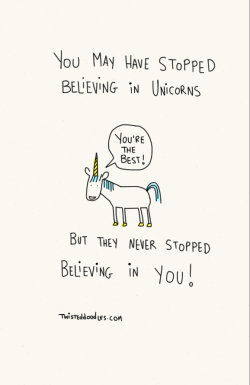 You May Have Stopped
Believing in Unicorns
You're
the
Best!
But they never stopped
Believing in you!
Twisteddoodles.com